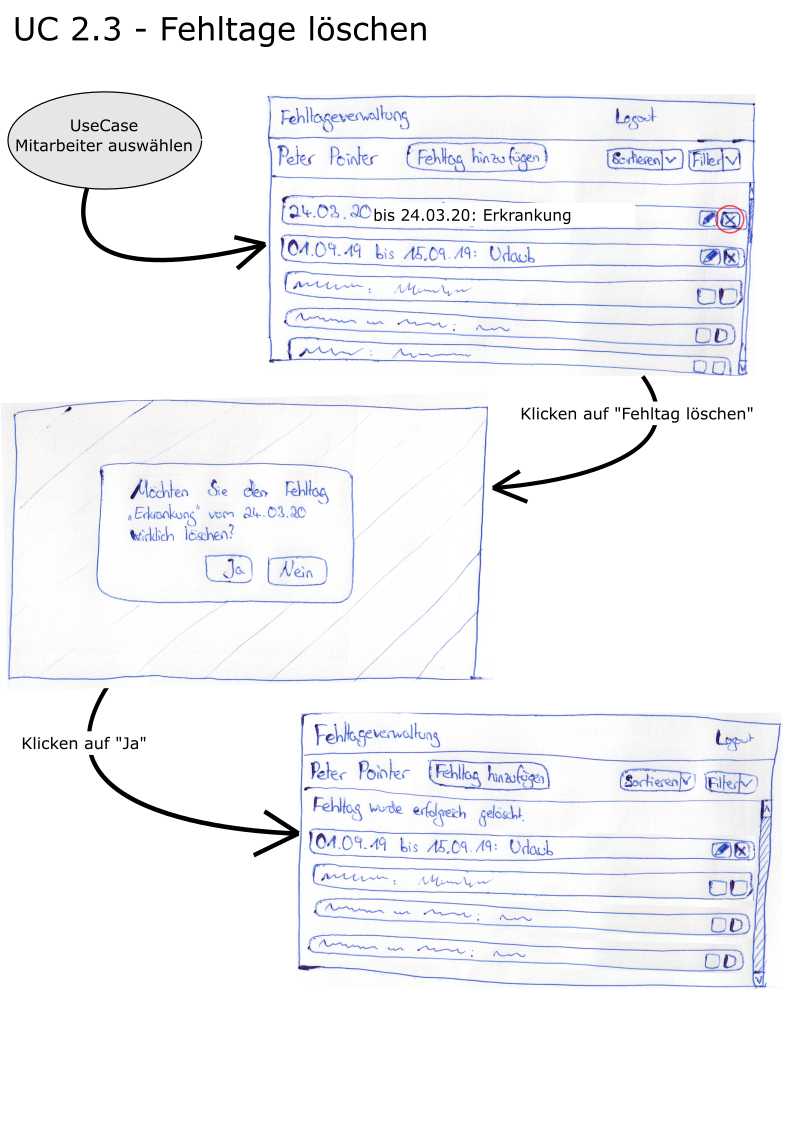 UC 2.3 - Fehltage löschen
UseCase
Mitarbeiter auswählen
Fehltageverwaltung Logout
Peter Pointer Fehltag hinzufügen Sortieren Filter
24.03.20 bis 24.03.20: Erkrankung
01.09.19 bis 15.09.19: Urlaub
Klicken auf "Fehltag löschen"
Möchten Sie den Fehltag
„Erkrankung" vom 24.03.20
wirklich löschen?
Ja Nein
Klicken auf "Ja"
Fehltageverwaltung Logout
Peter Pointer Fehltag hinzufügen Sortieren Filter
Fehltag wurde erfolgreich gelöscht.
01.09.19 bis 15.09.19: Urlaub